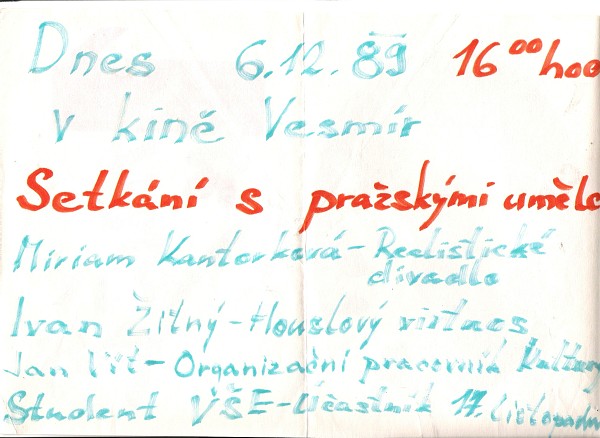 Dnes 6.12.89 16⁰⁰ hod
v kině Vesmír
Setkání s pražskými uměl
Miriam Kantorková - Realistické
divadlo
Ivan Žitný - Houslový virtuos
Jan - Organizační pracovník Kultury
Student VŠE - Účastník 17. listopadu